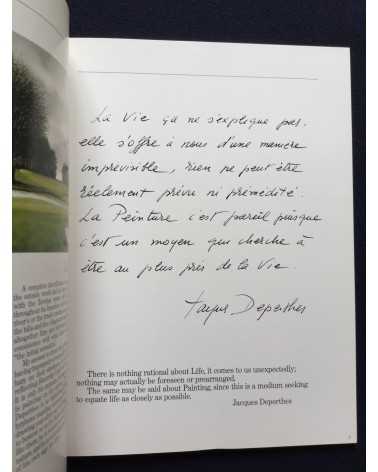 La Vie ça ne s'explique pas.
elle s'offre à nous d'une manière
imprévisible, rien ne peut être
réelement prévu ni prémédité.
La Peinture c'est pareil puisque
c'est un moyen qui cherche à
être au plus près de la Vie.
Jacques Deperthes
There is nothing rational about Life, it comes to us unexpectedly;
nothing may actually be foreseen or prearranged.
The same may be said about Painting, since this is a medium seeking
to equate life as closely as possible.
Jacques Deperthes